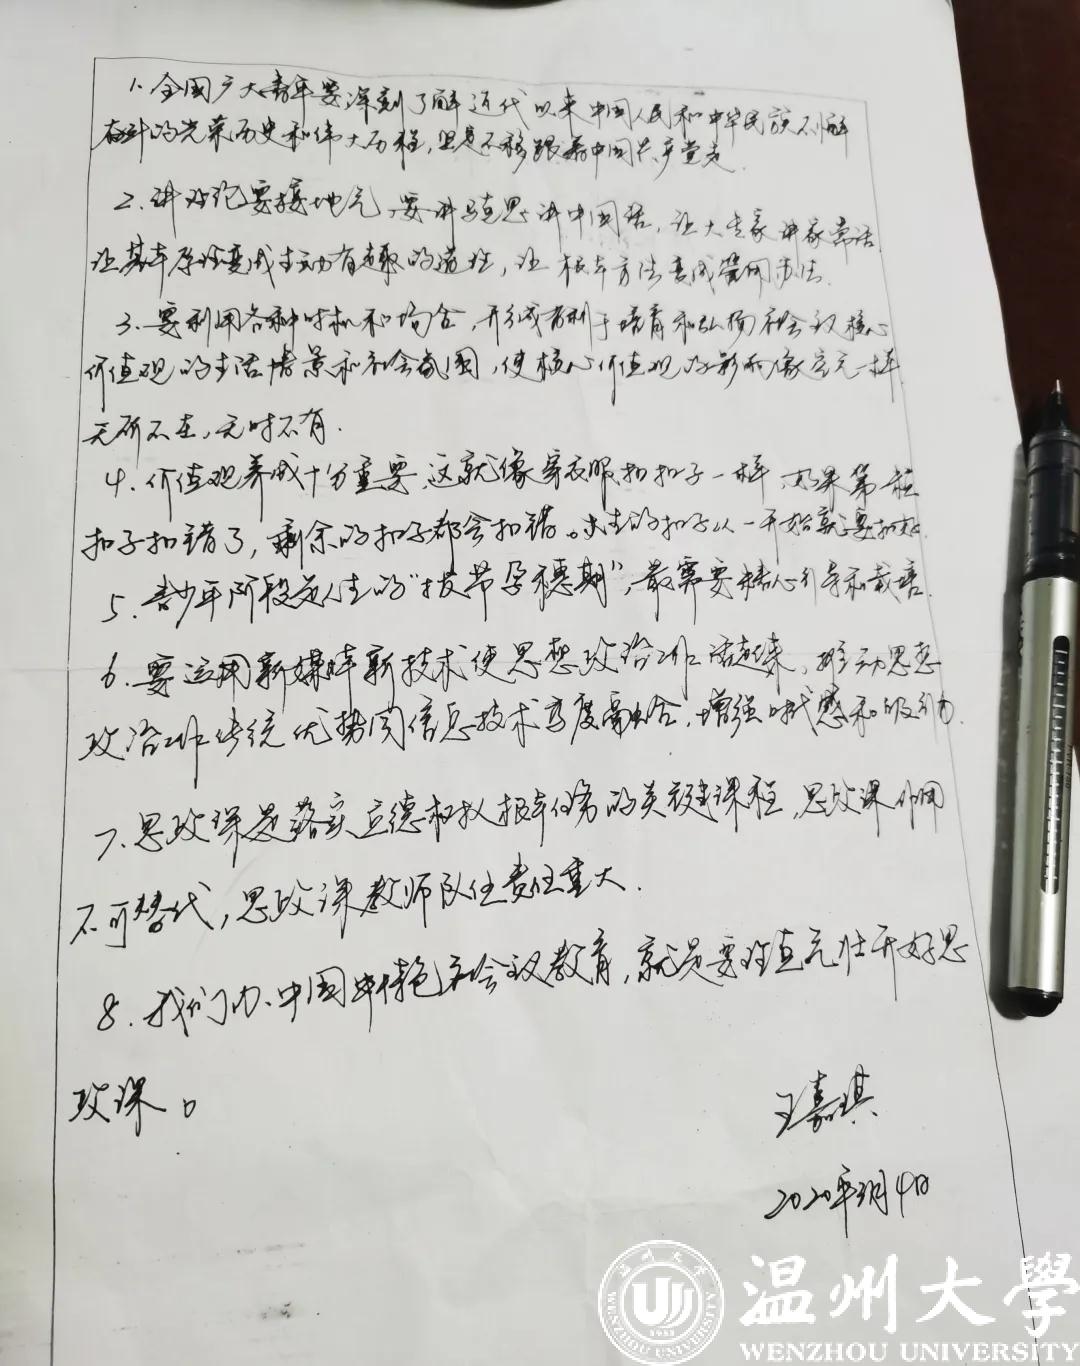 1. 全国广大青年要深刻了解近代以来中国人民和中华民族不懈
奋斗的光荣历史和伟大历程，坚定不移跟着中国共产党走.
2. 讲政治要接地气，要讲马克思讲中国话，让大专家讲家常话
让基本原理变成生动有趣的道理，让根本方法变成管用办法.
3. 要利用各种时机和场合，形成有利于培育和弘扬社会主义核心
价值观的生活情景和社会氛围，使核心价值观的影响像空气一样
无所不在，无时不有.
4. 价值观养成十分重要，这就像穿衣服扣扣子一样，如果第一粒
扣子扣错了，剩余的扣子都会扣错。人生的扣子从一开始就要扣好.
5. 青少年阶段是人生的“拔节孕穗期”，最需要精心引导和栽培.
6. 要运用新媒体新技术使思想政治工作活起来，推动思想
政治工作传统优势同信息技术高度融合，增强时代感和吸引力.
7. 思政课是落实立德树人根本任务的关键课程，思政课作用
不可替代，思政课教师队伍责任重大.
8. 我们办中国特色社会主义教育，就是要理直气壮开好思
政课。
王嘉琪
2020年3月4日
温州大学
WENZHOU UNIVERSITY
温州大学
WENZHOU UNIVERSITY
1933